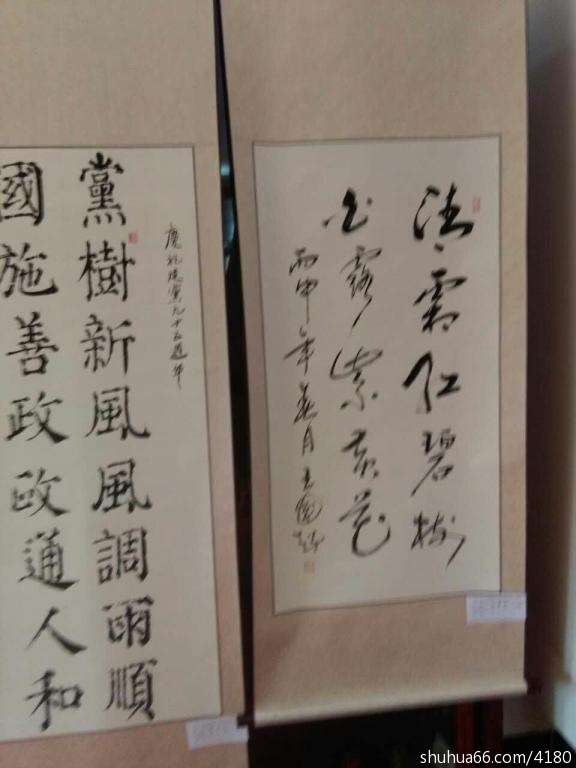 清霜红碧樹
白露紫黄花
丙申年
慶祝建黨九十五週年
黨樹新風風調雨順
國施善政政通人和
shuhua66.com/4180